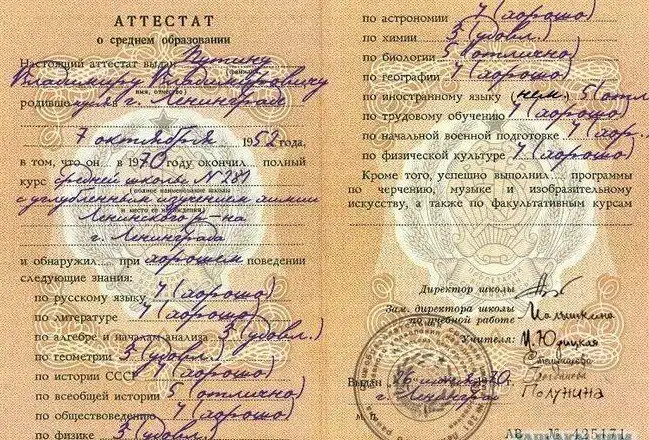 АТТЕСТАТ
о среднем образовании
Настоящий аттестат выдан Путину
(фамилия,
Владимиру Владимировичу
имя, отчество)
родившемуся г. Ленинград
7 октября 1952 года,
в том, что он в 1970 году окончил полный
курс средней школы № 281
(полное наименование школы
с углубленным изучением химии
и место ее нахождения)
Ленинского р-на
г. Ленинграда
и обнаружил при хорошем поведении
следующие знания:
по русскому языку 4 (хорошо)
по литературе 4 (хорошо)
по алгебре и началам анализа 3 (удовл.)
по геометрии 3 (удовл.)
по истории СССР 4 (хорошо)
по всеобщей истории 5 (отлично)
по обществоведению 4 (хорошо)
по физике 3 (удовл.)
по астрономии 4 (хорошо)
по химии 3 (удовл.)
по биологии 5 (отлично)
по географии 4 (хорошо)
по иностранному языку (нем.) 5 (отл
по трудовому обучению 4 (хорошо)
по начальной военной подготовке 4 (хор.
по физической культуре 4 (хорошо)
Кроме того, успешно выполнил программы
по черчению, музыке и изобразительному
искусству, а также по факультативным курсам
Директор школы
Зам. директора школы
по учебной работе
Учителя:
Полунина
Выдан 1970 г.
г. Ленинград
М. П.
№